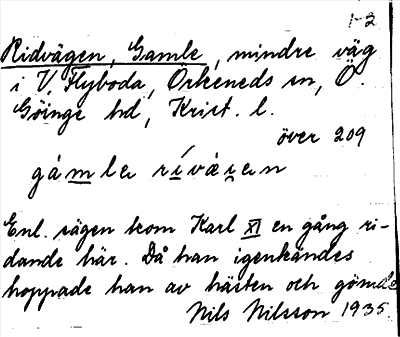 1-2
Ridvägen, Gamle, mindre väg
i V. Flyboda, Örkeneds sn, Ö.
Göinge hd, Krist. l.
över 209
gámle rívæ̀gen
Enl. sägen kom Karl XI en gång ri-
dande här. Då han igenkändes
hoppade han av hästen och gömde
Nils Nilsson 1935